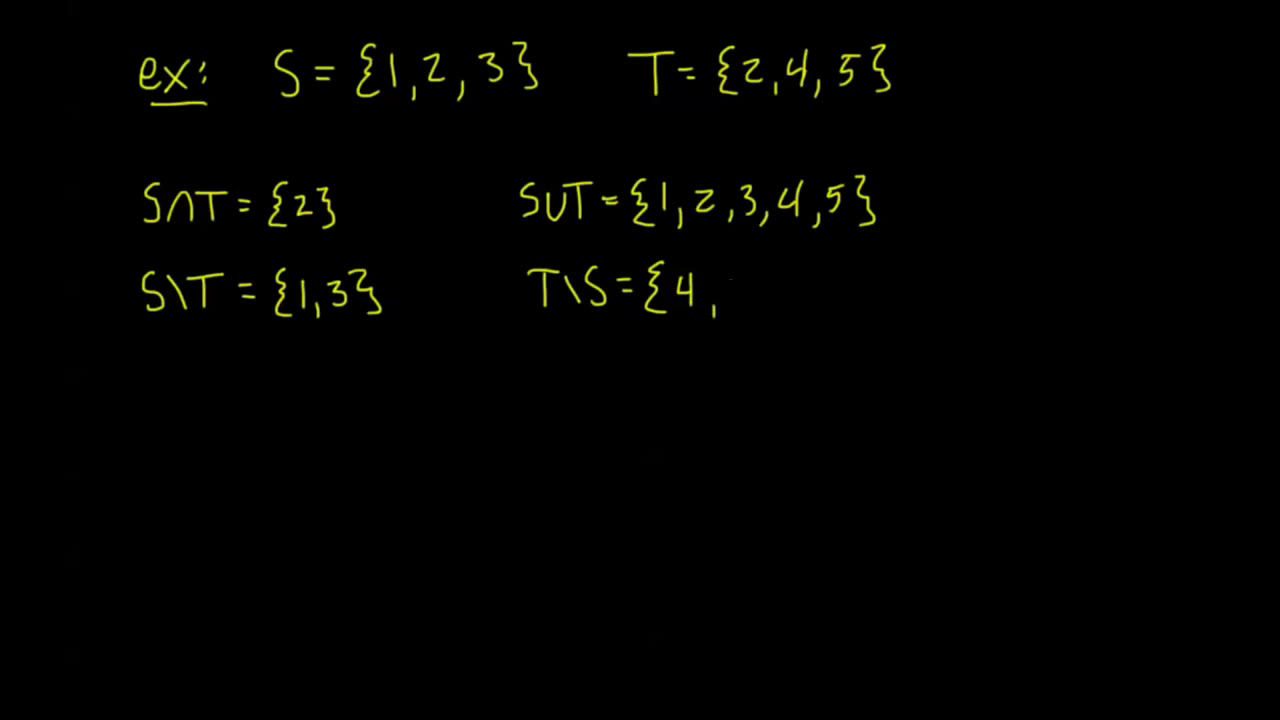 ex: S = {1,2,3} T = {2,4,5}
S∩T = {2} S∪T = {1,2,3,4,5}
S\T = {1,3} T\S = {4,